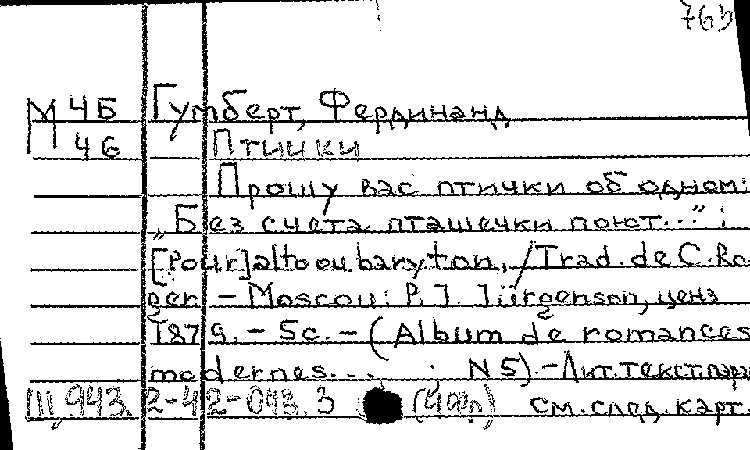 765
М 4Б Гумберт, Фердинанд
П 46 Птички
Прошу вас птички об одном:
„Без счета пташечки поют..." :
[Pour] alto ou baryton, / Trad. de C. Ro
ger - Moscou: P. J. Jürgenson, ценз
1879. - 5 c. - (Album de romances
modernes... ; N 5) - Лит. текст пар
III, 943. 2-42-043. 3 см. след. карт.